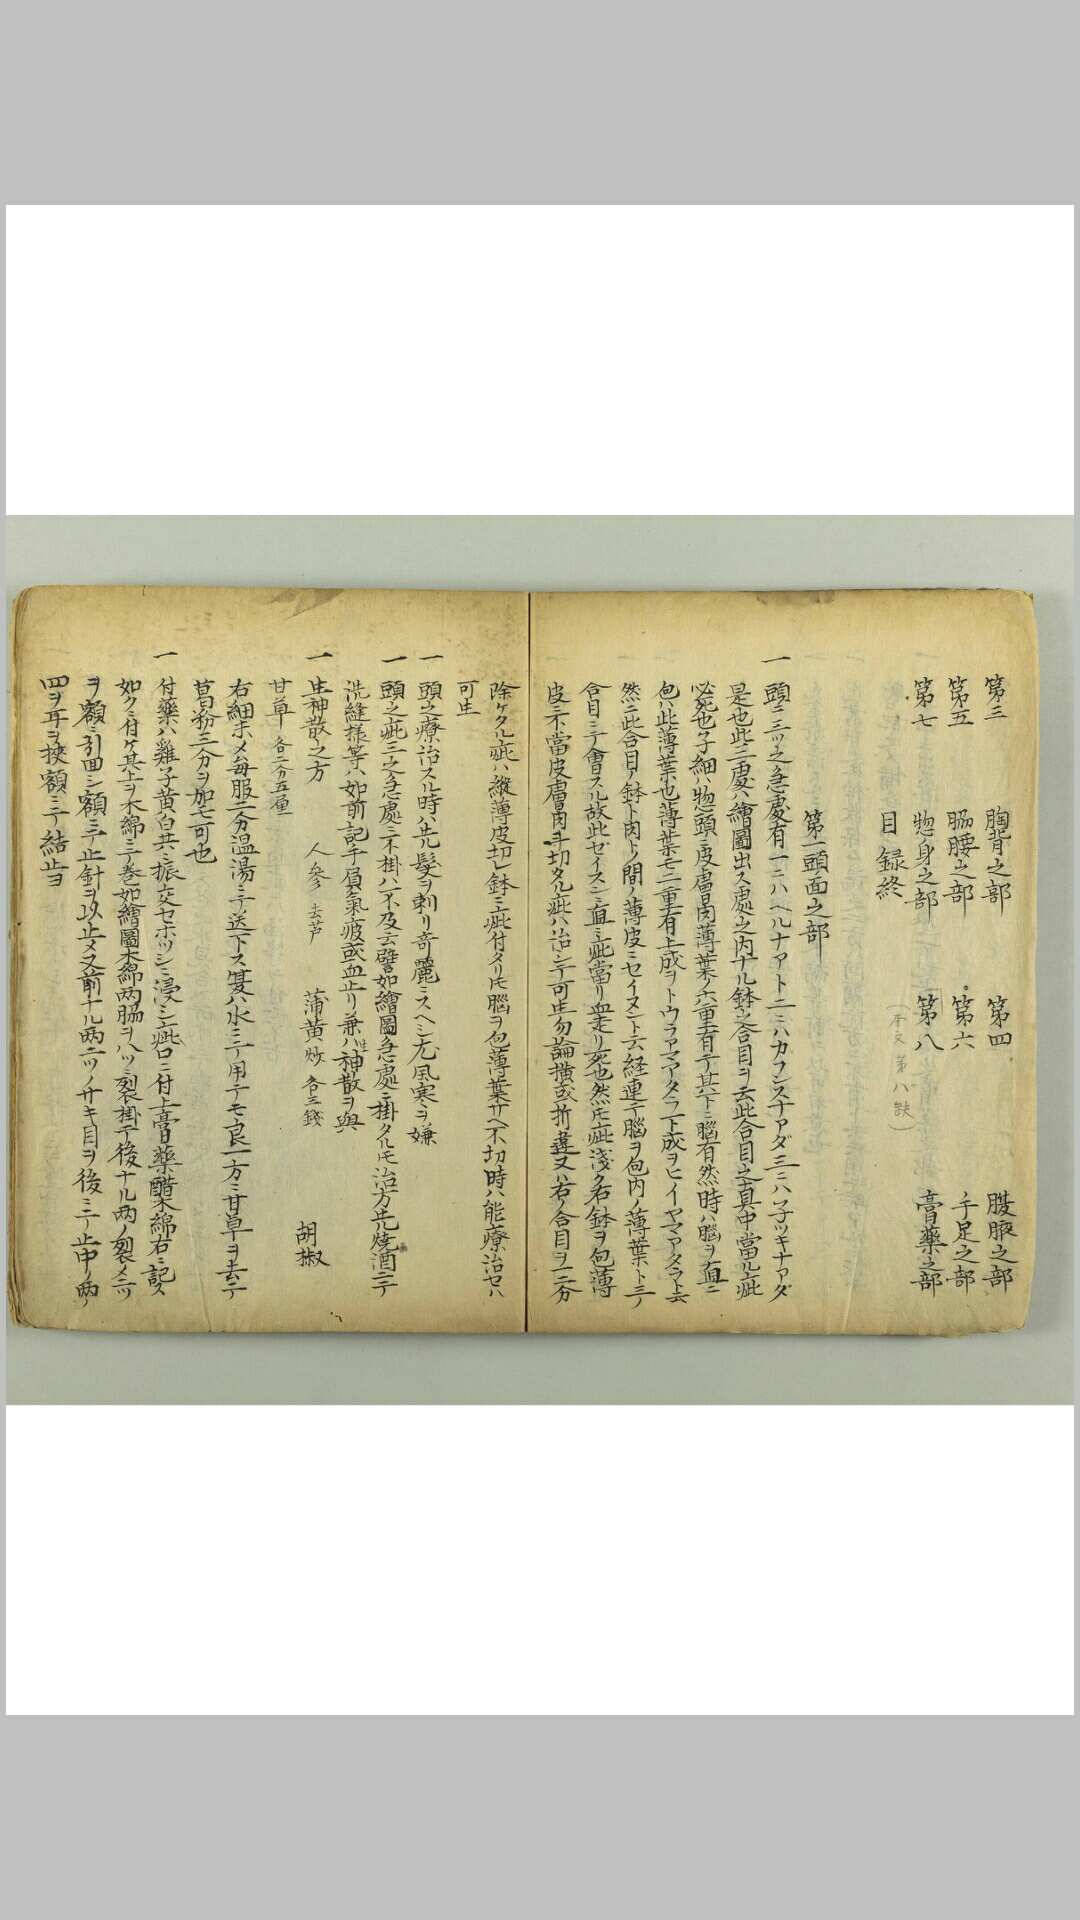 第三 胸背之部 第四 腹腋之部
第五 脇腰之部 第六 手足之部
第七 惣身之部 第八 膏藥之部
(本文第八缺)
目録終
第一頭面之部
一 頭ニ三ツ之急處有一ニハヘルナアト二ニハカフンスナアダ三ニハ子ツキナアダ
是也此三處ハ繪圖出ス處之内ナル鉢之合目ヲ云此合目之真中當ル疵
必死也子細ハ惣頭ニ皮膚肉薄葉ノ六重有テ其下ニ腦有然時ハ腦ヲ直ニ
包ハ此薄葉也薄葉モ二重有上成ヲトウラアマアタラ下成ヲヒイヤマアタラト云
然ニ此合目ノ鉢ト肉トノ間ノ薄皮ニセイヌント云経連テ腦ヲ包内ノ薄葉ト三ノ
合目ニテ會スル故此セイスンニ直ニ疵當リ血走リ死也然モ疵淺ク右鉢ヲ包薄
皮ニ不當皮膚肉ヲ切タル疵ハ治シテ可生勿論横或折違又ハ右ノ合目ヲ二分
除ケタル疵ハ縱薄皮切レ鉢ニ疵付タリモ腦ヲ包薄葉サヘ不切時ハ能療治セハ
可生
一 頭之療治スル時ハ先髮ヲ剃リ奇麗ニスヘシ尤風寒ヲ嫌
一 頭之疵三之急處ニ不掛ハ不及云譬如繪圖急處ニ掛タルモ治方先燒酒ニテ
洗縫様等ハ如前記手負氣疲或血止リ兼ハ生神散ヲ與
一 生神散之方 人參 去芦 蒲黄炒 各三錢 胡椒
甘草 各二分五厘
右細末メ毎服二分温湯ニテ送下ス夏ハ水ニテ用テモ良一方ニ甘草ヲ去テ
葛粉三分ヲ加モ可也
一 付藥ハ雞子黄白共ニ振交セホツシニ浸シ疵口ニ付上膏藥醋木綿右ニ記ス
如クニ付ケ其上ヲ木綿ニテ巻如繪圖木綿両脇ヲ八ツニ裂掛テ後ナル両ノ裂メ二ツ
ヲ額ニ引回シ額ニテ止針ヲ以止メ又前ナル両二ツノサキ目ヲ後ニテ止中ノ両ノ
四ヲ耳ヲ挾額ニテ結止ヨ